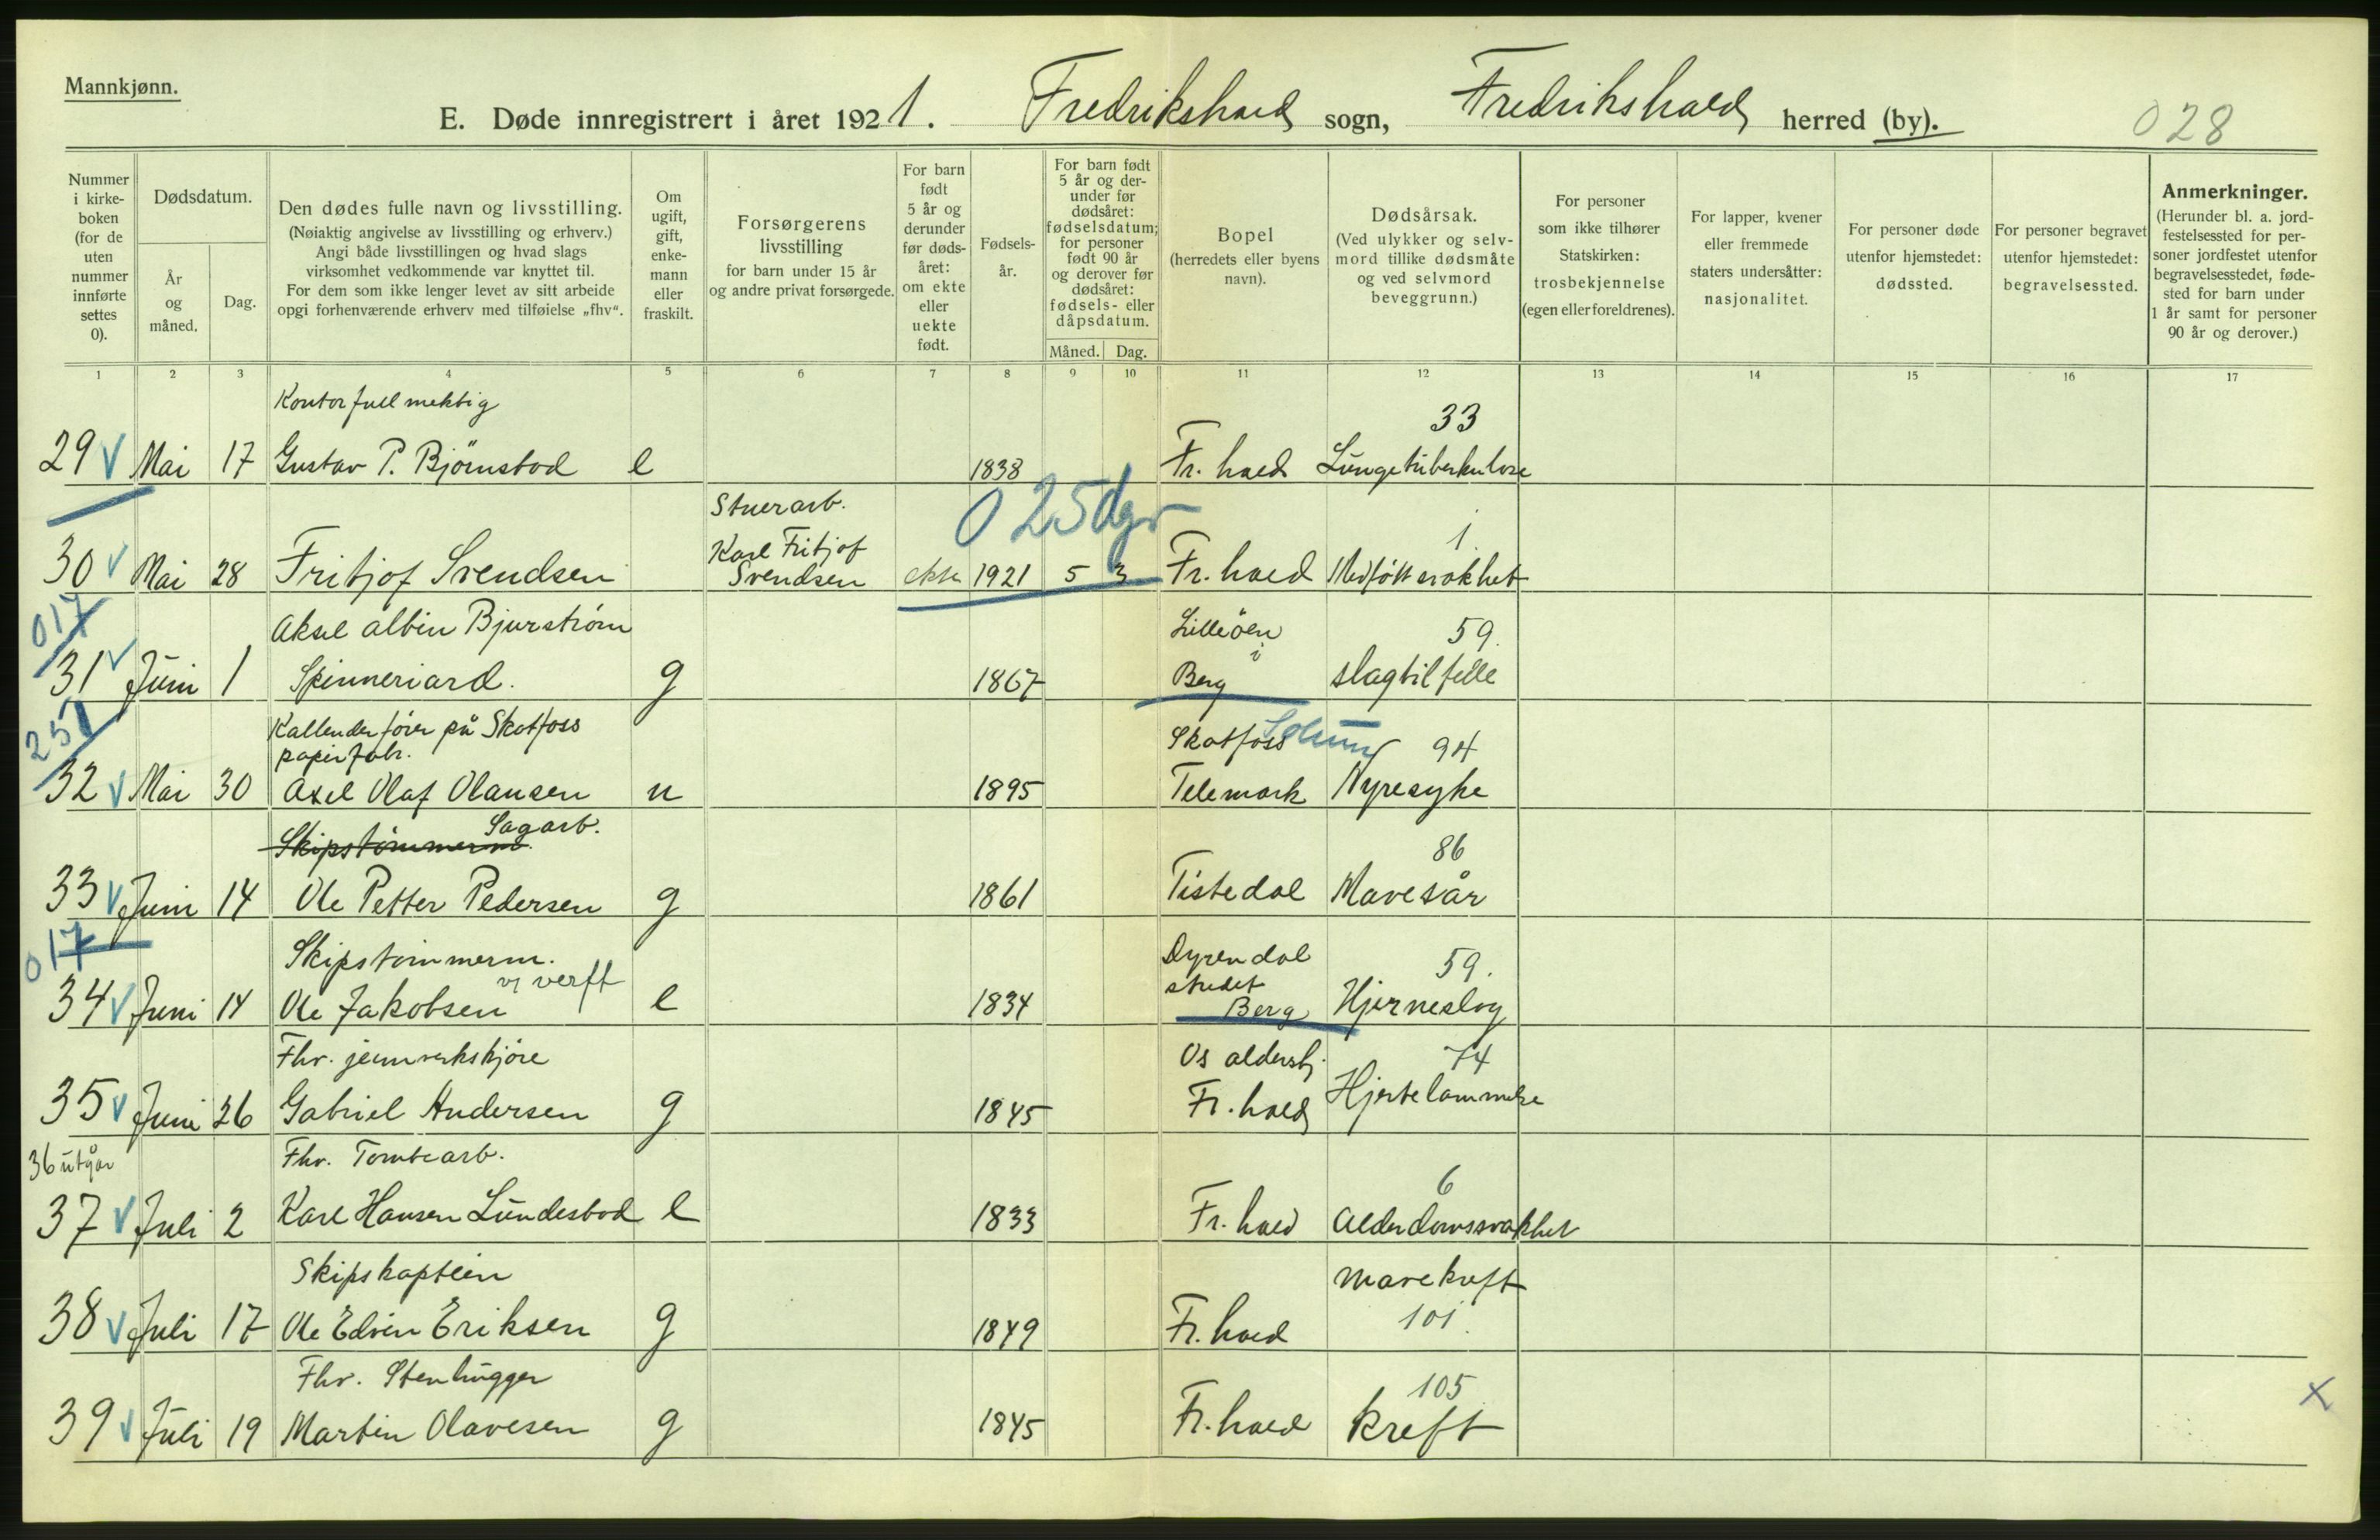 Mannkjønn.
E. Døde innregistrert i året 1921. Fredrikshald sogn, Fredrikshald herred (by). 028
Nummer i kirke- boken (for de uten nummer innførte settes 0).
Dødsdatum.
År og måned.
Dag.
Den dødes fulle navn og livsstilling.
(Nøiaktig angivelse av livsstilling og erhverv.)
Angi både livsstillingen og hvad slags
virksomhet vedkommende var knyttet til.
For dem som ikke lenger levet av sitt arbeide
opgi forhenværende erhverv med tilføielse „fhv“.
Om ugift, gift, enke- mann eller fraskilt.
Forsørgerens livsstilling
for barn under 15 år
og andre privat forsørgede.
For barn født 5 år og derunder før døds- året: om ekte eller uekte født.
Fødsels- år.
For barn født 5 år og der- under før dødsåret: fødselsdatum; for personer født 90 år og derover før dødsåret: fødsels- eller dåpsdatum.
Måned. Dag.
Bopel
(herredets eller byens navn).
Dødsårsak.
(Ved ulykker og selv- mord tillike dødsmåte og ved selvmord beveggrunn.)
For personer som ikke tilhører Statskirken: trosbekjennelse (egen eller foreldrenes).
For lapper, kvener eller fremmede staters undersåtter: nasjonalitet.
For personer døde utenfor hjemstedet: dødssted.
For personer begravet utenfor hjemstedet: begravelsessted.
Anmerkninger.
(Herunder bl. a. jord- festelsessted for per- soner jordfestet utenfor begravelsesstedet, føde- sted for barn under 1 år samt for personer 90 år og derover.)
1 2 3 4 5 6 7 8 9 10 11 12 13 14 15 16 17
Kontorfullmektig 33
29 V Mai 17 Gustav P. Bjørnstad e 1838 Fr. hald Lungetuberkulose
Stuerarb. 0 25 dgr
Karl Fritjof 1
30 V Mai 28 Fritjof Svendsen Svendsen ekte 1921 5 3 Fr. hald Medfött svakhet
017 Aksel albin Bjurström Lilleöen i 59.
31 V Juni 1 Spinneriarb. g 1867 Berg slagtilfelle
251 Kallenderförer på Skotfoss Skotfoss Solum 94
papirfabr.
32 V Mai 30 Axel Olaf Olausen u 1895 Telemark Nyresyke
Skipstömmerm. Sagarb. 86
33 V Juni 14 Ole Petter Pedersen g 1861 Tistedal Mavesår
017 Skipstömmerm. Dyrendal 59.
v/ verft stredet
34 V Juni 14 Ole Jakobsen e 1834 Berg Hjerneslag
Fhv. jernverkskjöre Os aldershj. 74
35 V Juni 26 Gabriel Andersen g 1845 Fr. hald Hjertelammelse
36 utgår Fhv. Tomtearb. 6
37 V Juli 2 Karl Hansen Lundestad e 1833 Fr. hald Alderdomssvakhet
Skipskaptein Mavekreft
38 V Juli 17 Ole Edvin Eriksen g 1849 Fr. hald 101.
Fhv. Stenhugger 105 x
39 V Juli 19 Martin Olavesen g 1845 Fr. hald Kreft